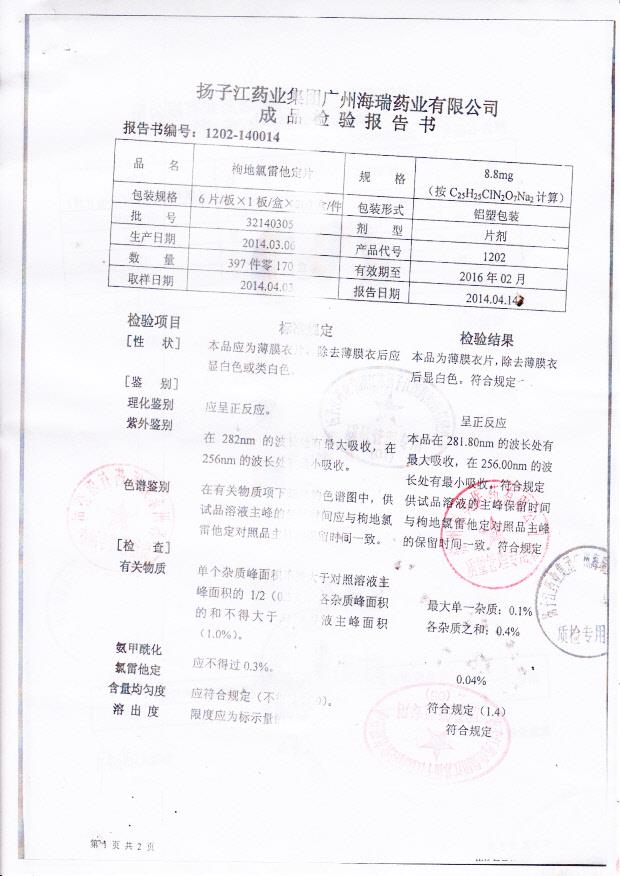 扬子江药业集团广州海瑞药业有限公司
成品检验报告书
报告书编号：1202-140014
品 名 枸地氯雷他定片 规 格 8.8mg
（按 C25H25ClN2O7Na2 计算）
包装规格 6 片/板×1 板/盒× 盒/件 包装形式 铝塑包装
批 号 32140305 剂 型 片剂
生产日期 2014.03.06 产品代号 1202
数 量 397 件零 170 有效期至 2016 年 02 月
取样日期 2014.04.03 报告日期 2014.04.14
检验项目 标准规定 检验结果
［性 状］ 本品应为薄膜衣片，除去薄膜衣后应 本品为薄膜衣片，除去薄膜衣
显白色或类白色 后显白色。符合规定
［鉴 别］
理化鉴别 应呈正反应。 呈正反应
紫外鉴别
在 282nm 的波 处有最大吸收，在 本品在 281.80nm 的波长处有
256nm 的波长处 小吸收。 最大吸收，在 256.00nm 的波
长处有最小吸收。符合规定
色谱鉴别 在有关物质项下 的色谱图中，供 供试品溶液的主峰保留时间
试品溶液主峰的 时间应与枸地氯 与枸地氯雷他定对照品主峰
雷他定对照品主 留时间一致。 的保留时间一致。符合规定
［检 查］
有关物质 单个杂质峰面积 大于对照溶液主
峰面积的 1/2（0.5 各杂质峰面积 最大单一杂质：0.1%
的和不得大于 液主峰面积 各杂质之和：0.4%
（1.0%）。
氨甲酰化
氯雷他定 应不得过 0.3%。 0.04%
含量均匀度 应符合规定（不 ）。 符合规定（1.4）
溶 出 度 限度应为标示量 符合规定
质检专用
第 1 页 共 2 页